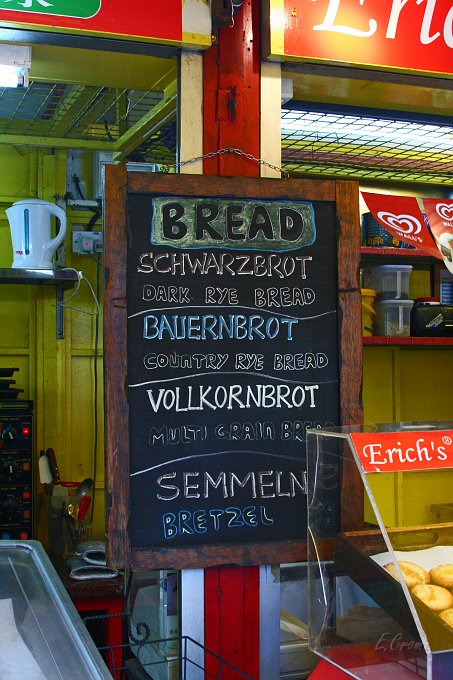 Erich
WALL'S
BREAD
SCHWARZBROT
DARK RYE BREAD
BAUERNBROT
COUNTRY RYE BREAD
VOLLKORNBROT
MULTI GRAIN BREAD
SEMMELN
BRETZEL
Erich's®